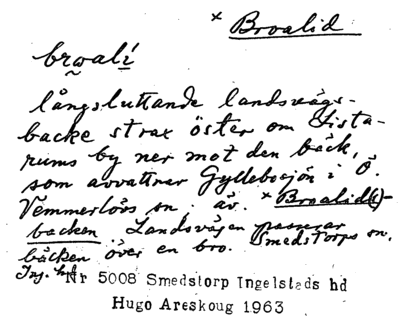 × Broalid
brwalí
långsluttande landsvägs-
backe strax öster om Lista-
rums by ner mot den bäck,
som avvattnar Gyllebosjön i Ö.
Vemmerlövs sn. äv. × Broalid(s)-
backen Landsvägen passerar
bäcken över en bro. Smedstorps sn.
Ing. hd
Nr 5008 Smedstorp Ingelstads hd
Hugo Areskoug 1963